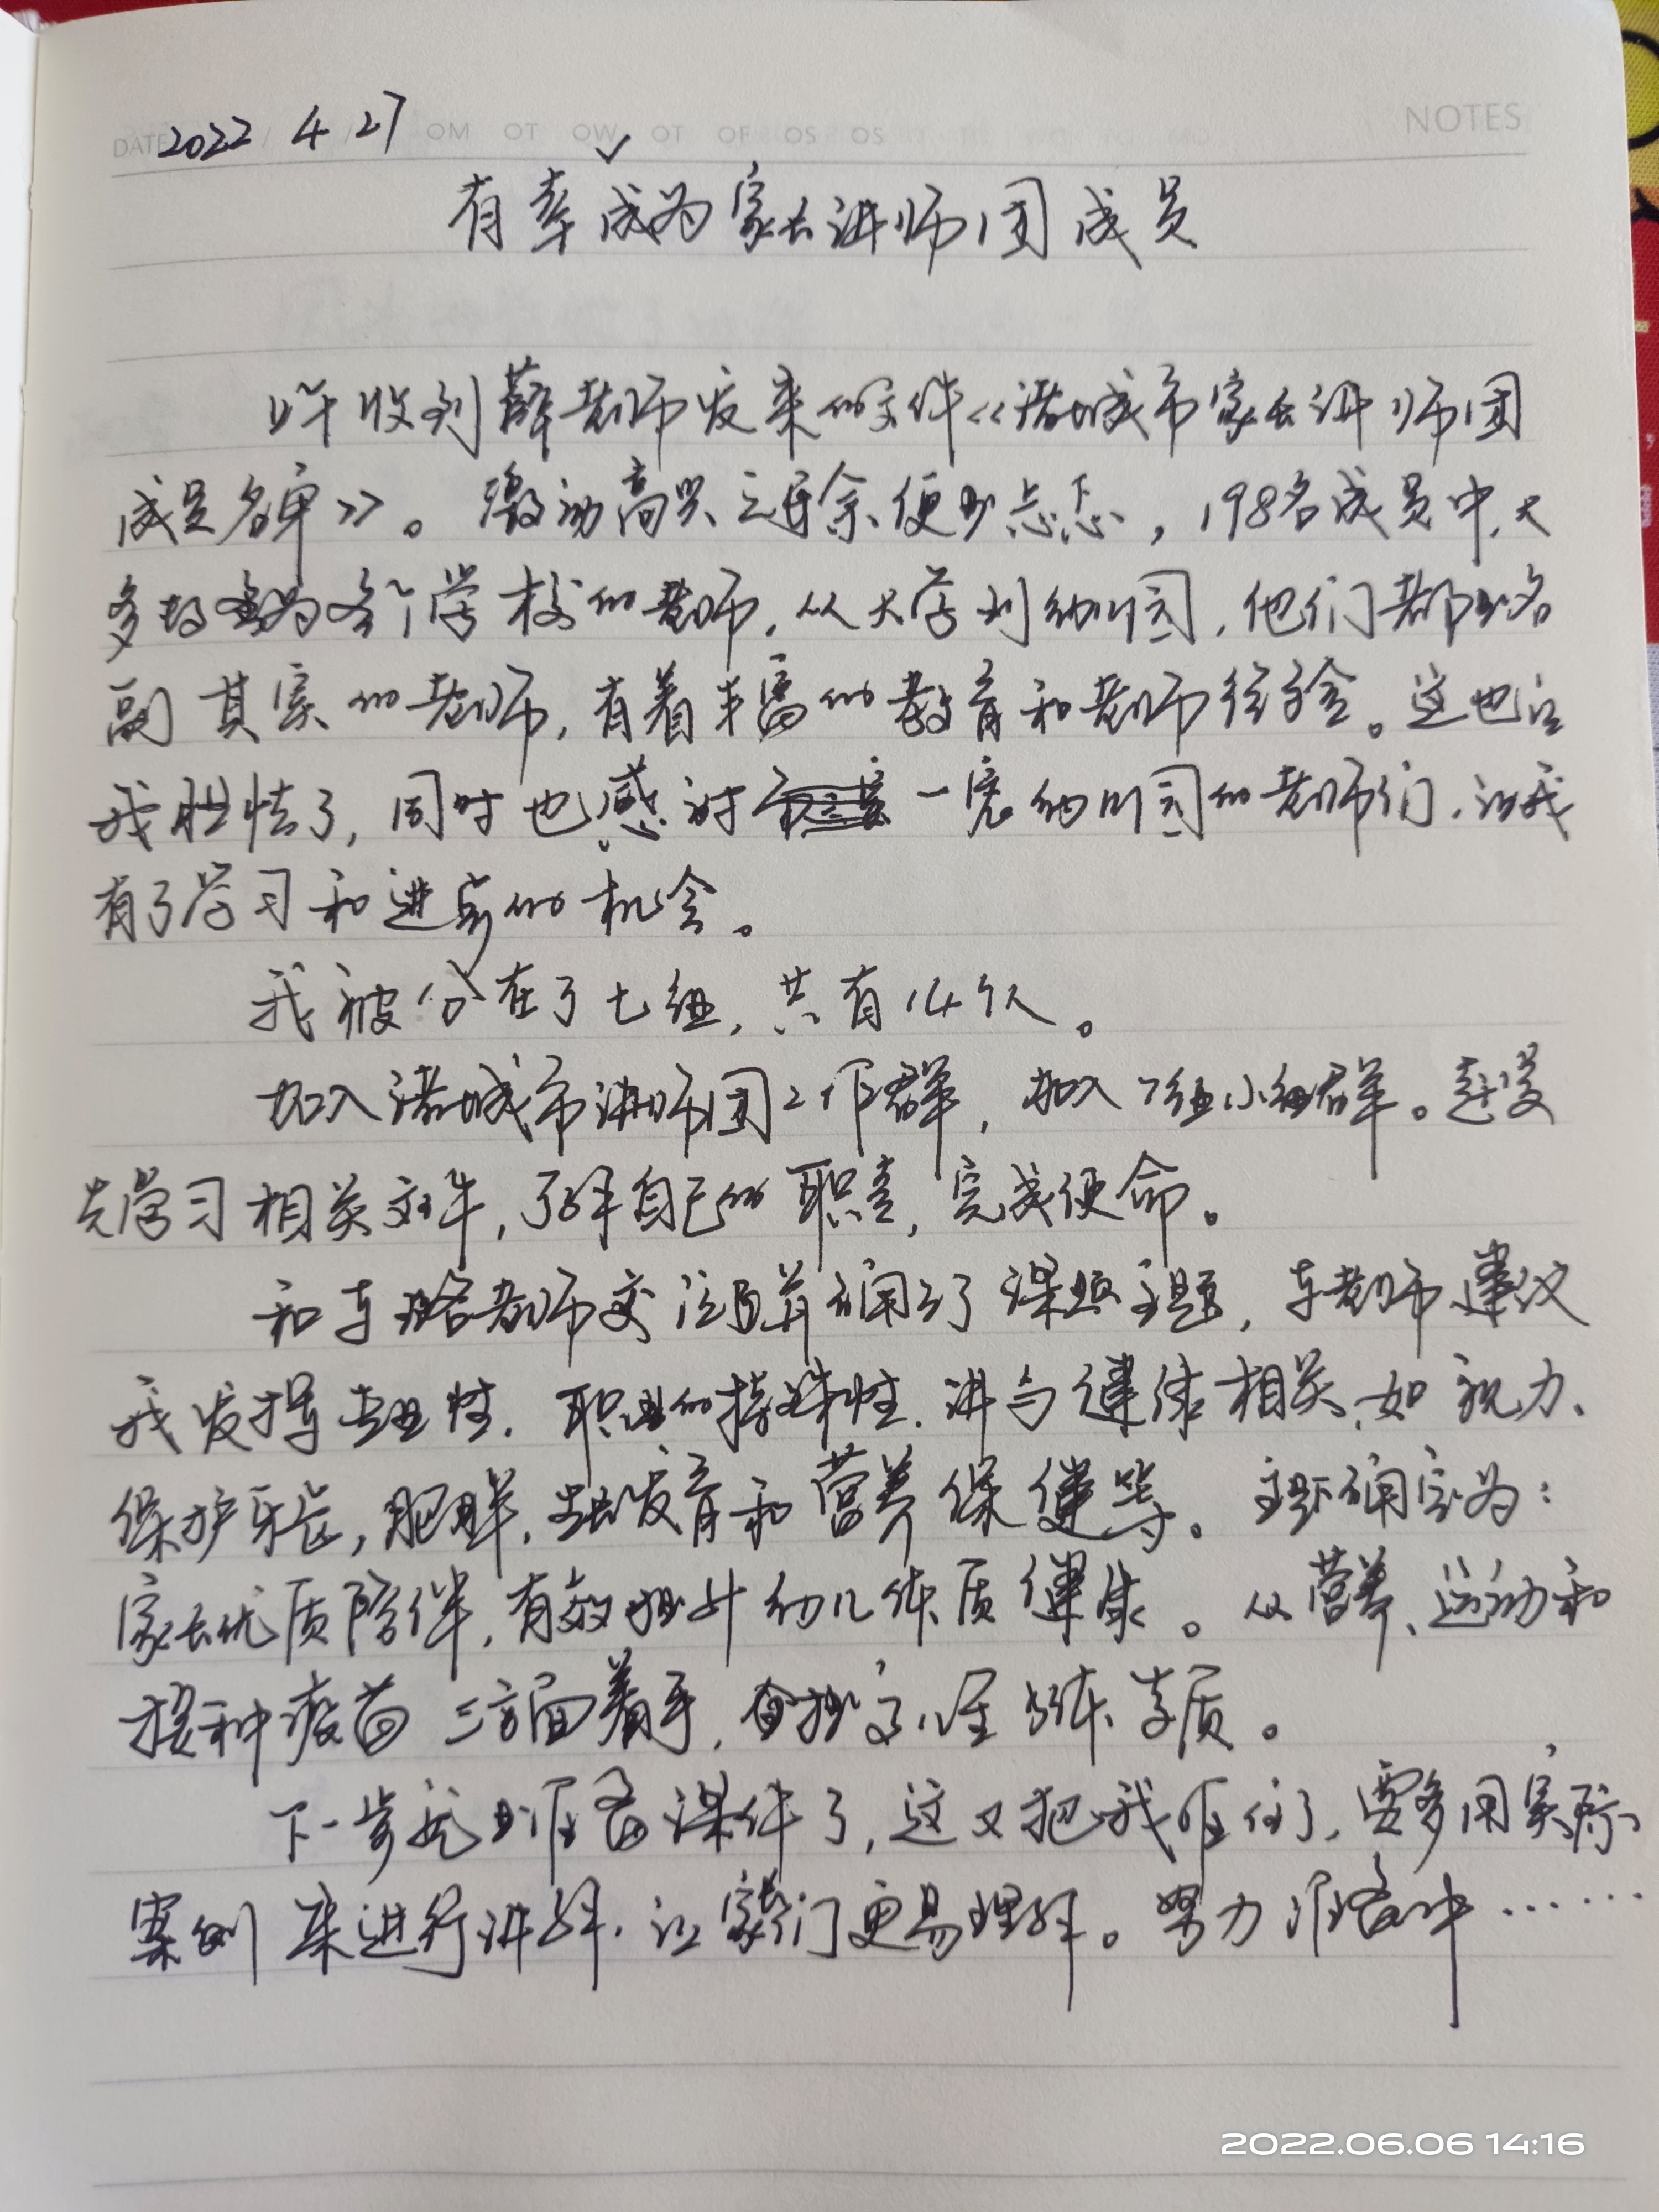 DATE 2022 / 4 / 27 OM OT OW OT OF OS OS
NOTES
有幸成为家长讲师团成员
上午收到薛老师发来的文件《诸城市家长讲师团
成员名单》。激动高兴之余便是忐忑，198名成员中，大
多数为各个学校的老师，从大学到幼儿园，他们都是名
副其实的老师，有着丰富的教育和老师经验。这也让
我胆怯了，同时也感谢一宽幼儿园的老师们，让我
有了学习和进步的机会。
我被分在了七组，共有14个人。
加入诸城市讲师团工作群，加入7组小组群。赶紧
先学习相关文件，了解自己的职责，完成使命。
和车老师交流后并确定了课题主题，车老师建议
我发挥专业性，职业的特殊性，讲与健康相关，如视力、
保护牙齿，肥胖，生长发育和营养保健等。主题确定为：
家长优质陪伴，有效提升幼儿体质健康。从营养、运动和
接种疫苗三方面着手，身体素质。
下一步就是准备课件了，这又把我难住了，要多用实际
案例来进行讲解，让家长们更易理解。努力准备中……
2022.06.06 14:16